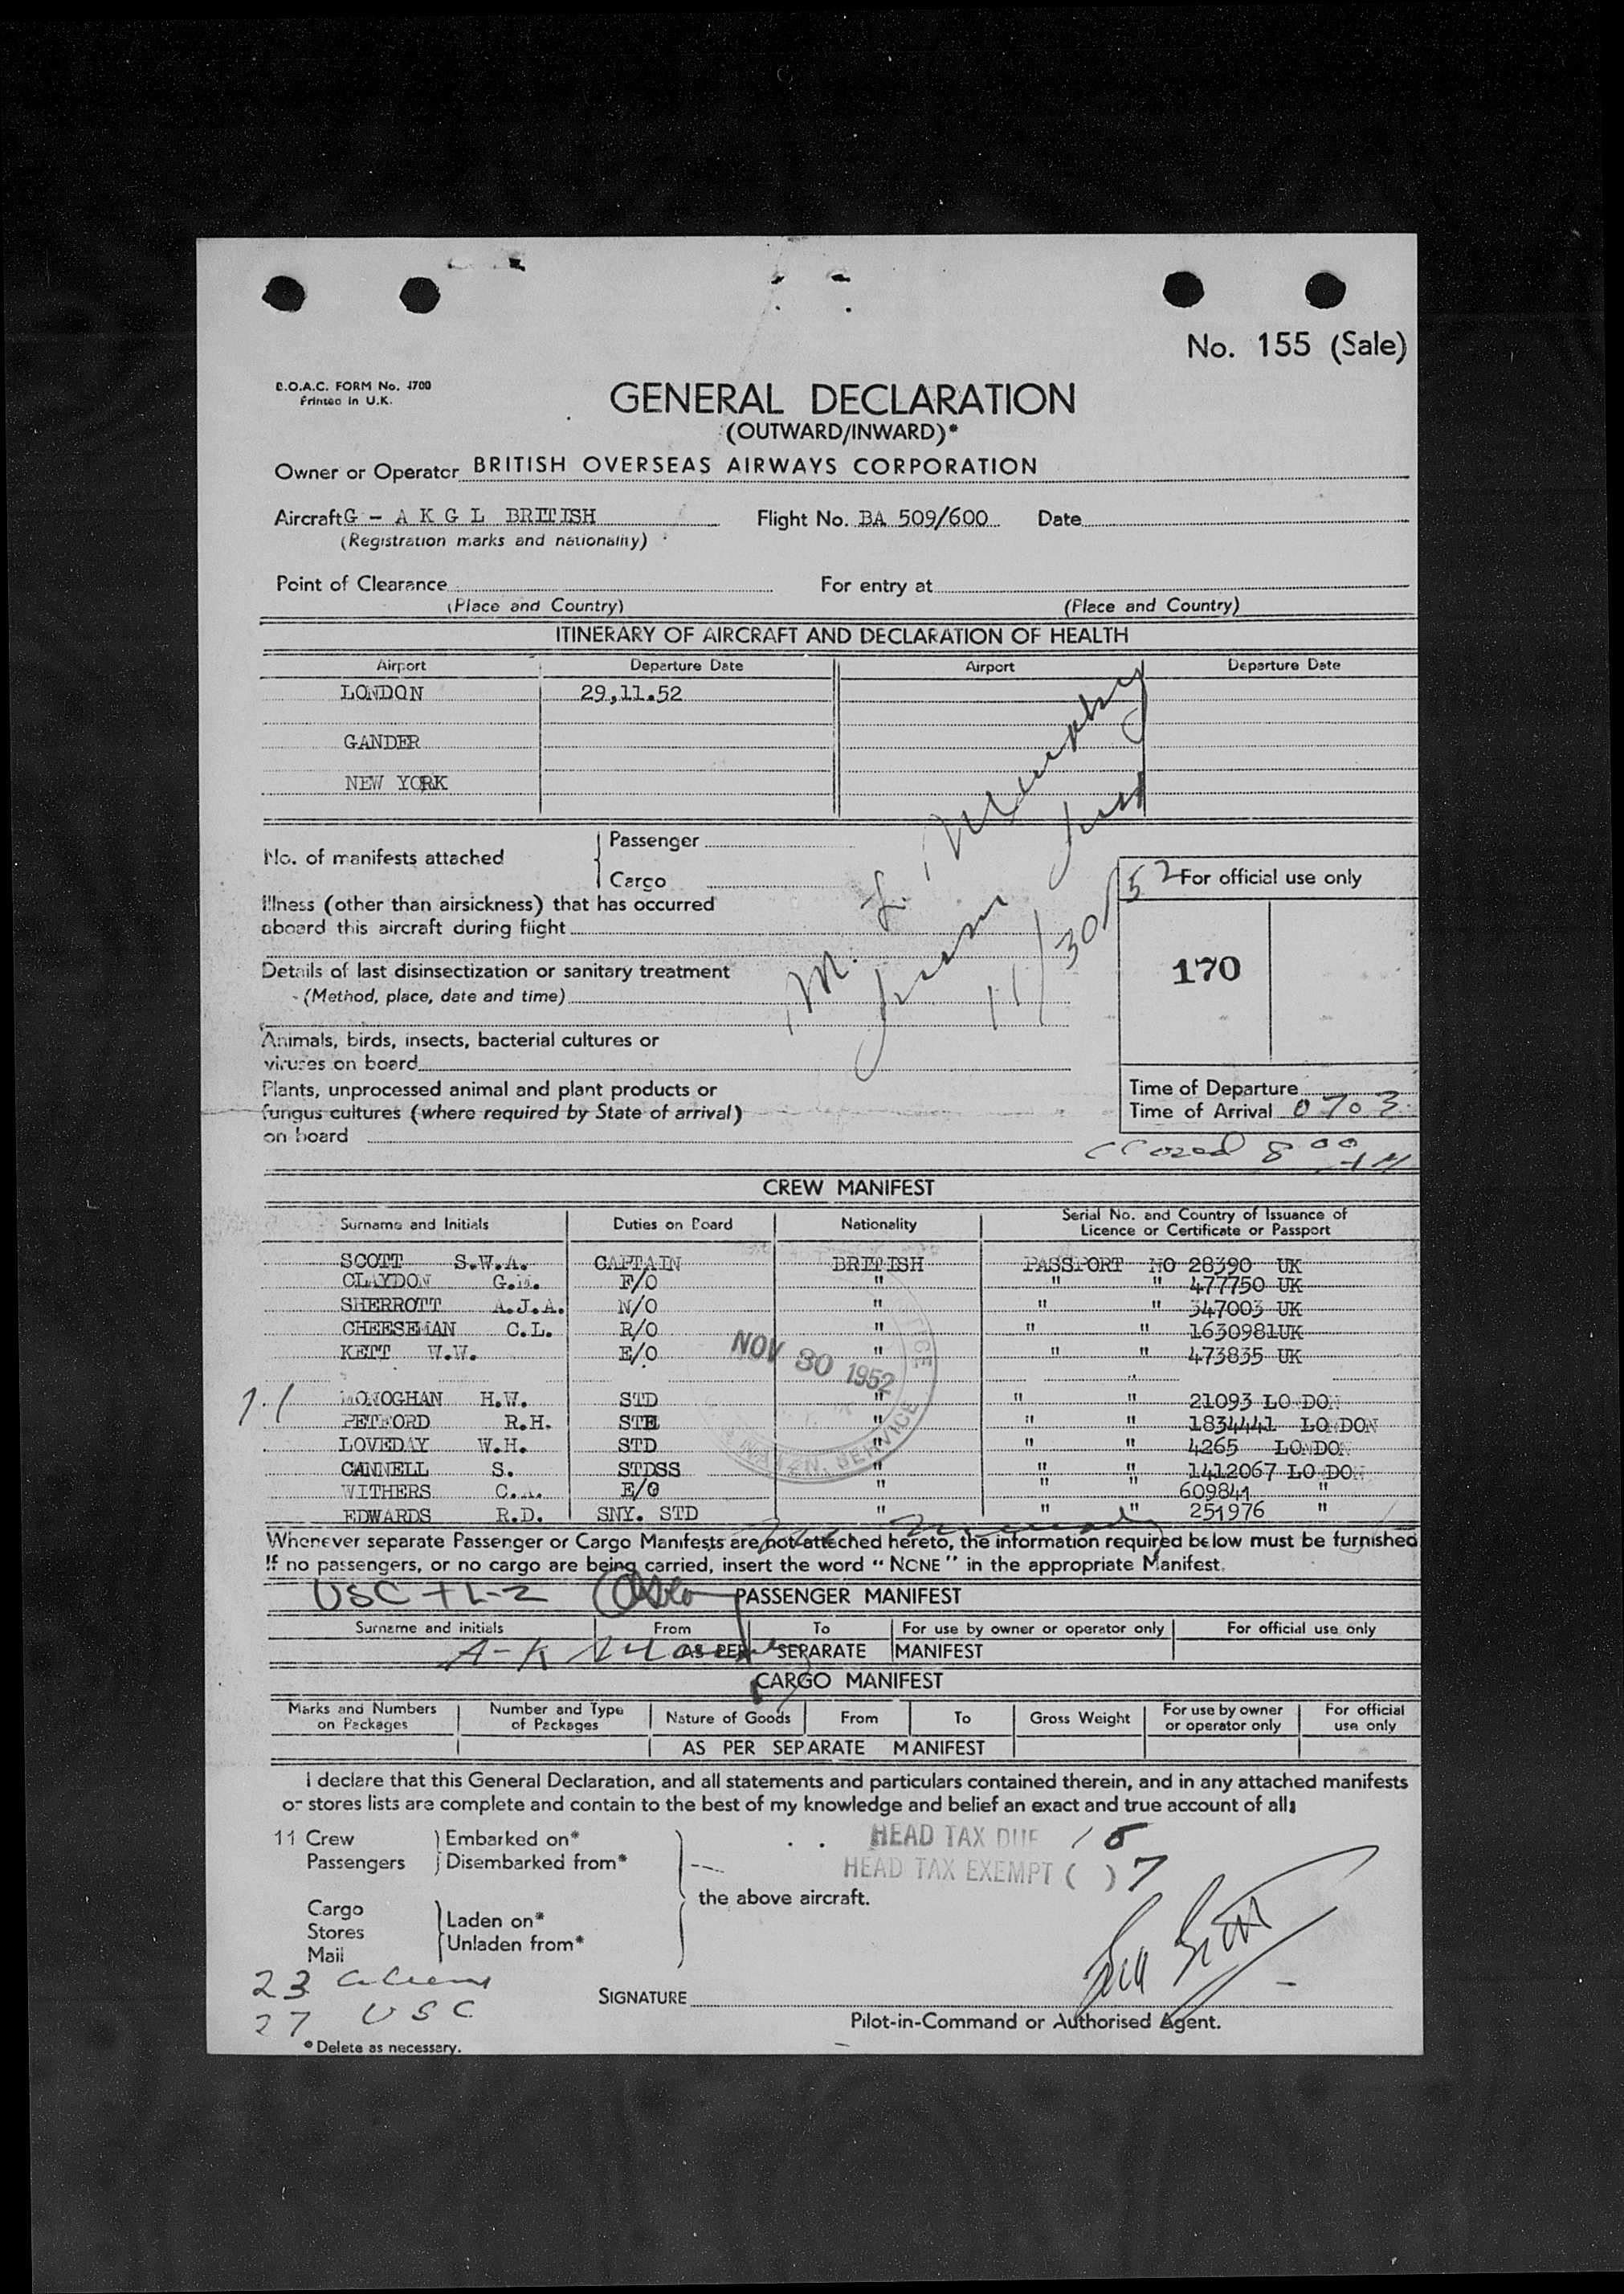 No. 155 (Sale)
B.O.A.C. FORM No. 4700
Printed in U.K.
GENERAL DECLARATION
(OUTWARD/INWARD)*
Owner or Operator BRITISH OVERSEAS AIRWAYS CORPORATION
Aircraft G - A K G L BRITISH Flight No. BA 509/600 Date
(Registration marks and nationality)
Point of Clearance For entry at
(Place and Country) (Place and Country)
ITINERARY OF AIRCRAFT AND DECLARATION OF HEALTH
Airport Departure Date Airport Departure Date
LONDON 29,11.52
GANDER
NEW YORK
M. L. Murphy
11/30/52
No. of manifests attached
Passenger
Cargo
For official use only
Illness (other than airsickness) that has occurred
aboard this aircraft during flight
Details of last disinsectization or sanitary treatment
(Method, place, date and time)
170
Animals, birds, insects, bacterial cultures or
viruses on board
Plants, unprocessed animal and plant products or
fungus cultures (where required by State of arrival)
on board
Time of Departure
Time of Arrival 0703
8 00 AM
CREW MANIFEST
Surname and Initials Duties on Board Nationality Serial No. and Country of Issuance of
Licence or Certificate or Passport
SCOTT S.W.A. CAPTAIN BRITISH PASSPORT NO 28390 UK
CLAYDON G.M. F/O " " " 477750 UK
SHERROTT A.J.A. N/O " " " 347003 UK
CHEESEMAN C.L. R/O " " " 1630981UK
KETT W.W. E/O " " " 473835 UK
NOV 30 1952
MONOGHAN H.W. STD " " " 21093 LONDON
PETFORD R.H. STD " " " 1834441 LONDON
LOVEDAY W.H. STD " " " 4265 LONDON
CANNELL S. STDSS " " " 1412067 LONDON
WITHERS C.A. E/O " " " 609841 "
EDWARDS R.D. SNY. STD " " " 251976 "
Whenever separate Passenger or Cargo Manifests are not attached hereto, the information required below must be furnished
If no passengers, or no cargo are being carried, insert the word "NONE" in the appropriate Manifest.
USC
PASSENGER MANIFEST
Surname and initials From To For use by owner or operator only For official use only
A-K
AS PER SEPARATE MANIFEST
CARGO MANIFEST
Marks and Numbers on Packages Number and Type of Packages Nature of Goods From To Gross Weight For use by owner or operator only For official use only
AS PER SEPARATE MANIFEST
I declare that this General Declaration, and all statements and particulars contained therein, and in any attached manifests
or stores lists are complete and contain to the best of my knowledge and belief an exact and true account of all:
11 Crew Embarked on*
Passengers Disembarked from*
HEAD TAX DUE
HEAD TAX EXEMPT ( ) 7
the above aircraft.
Cargo
Stores
Mail
Laden on*
Unladen from*
23 aliens
27 USC
SIGNATURE
Pilot-in-Command or Authorised Agent.
* Delete as necessary.